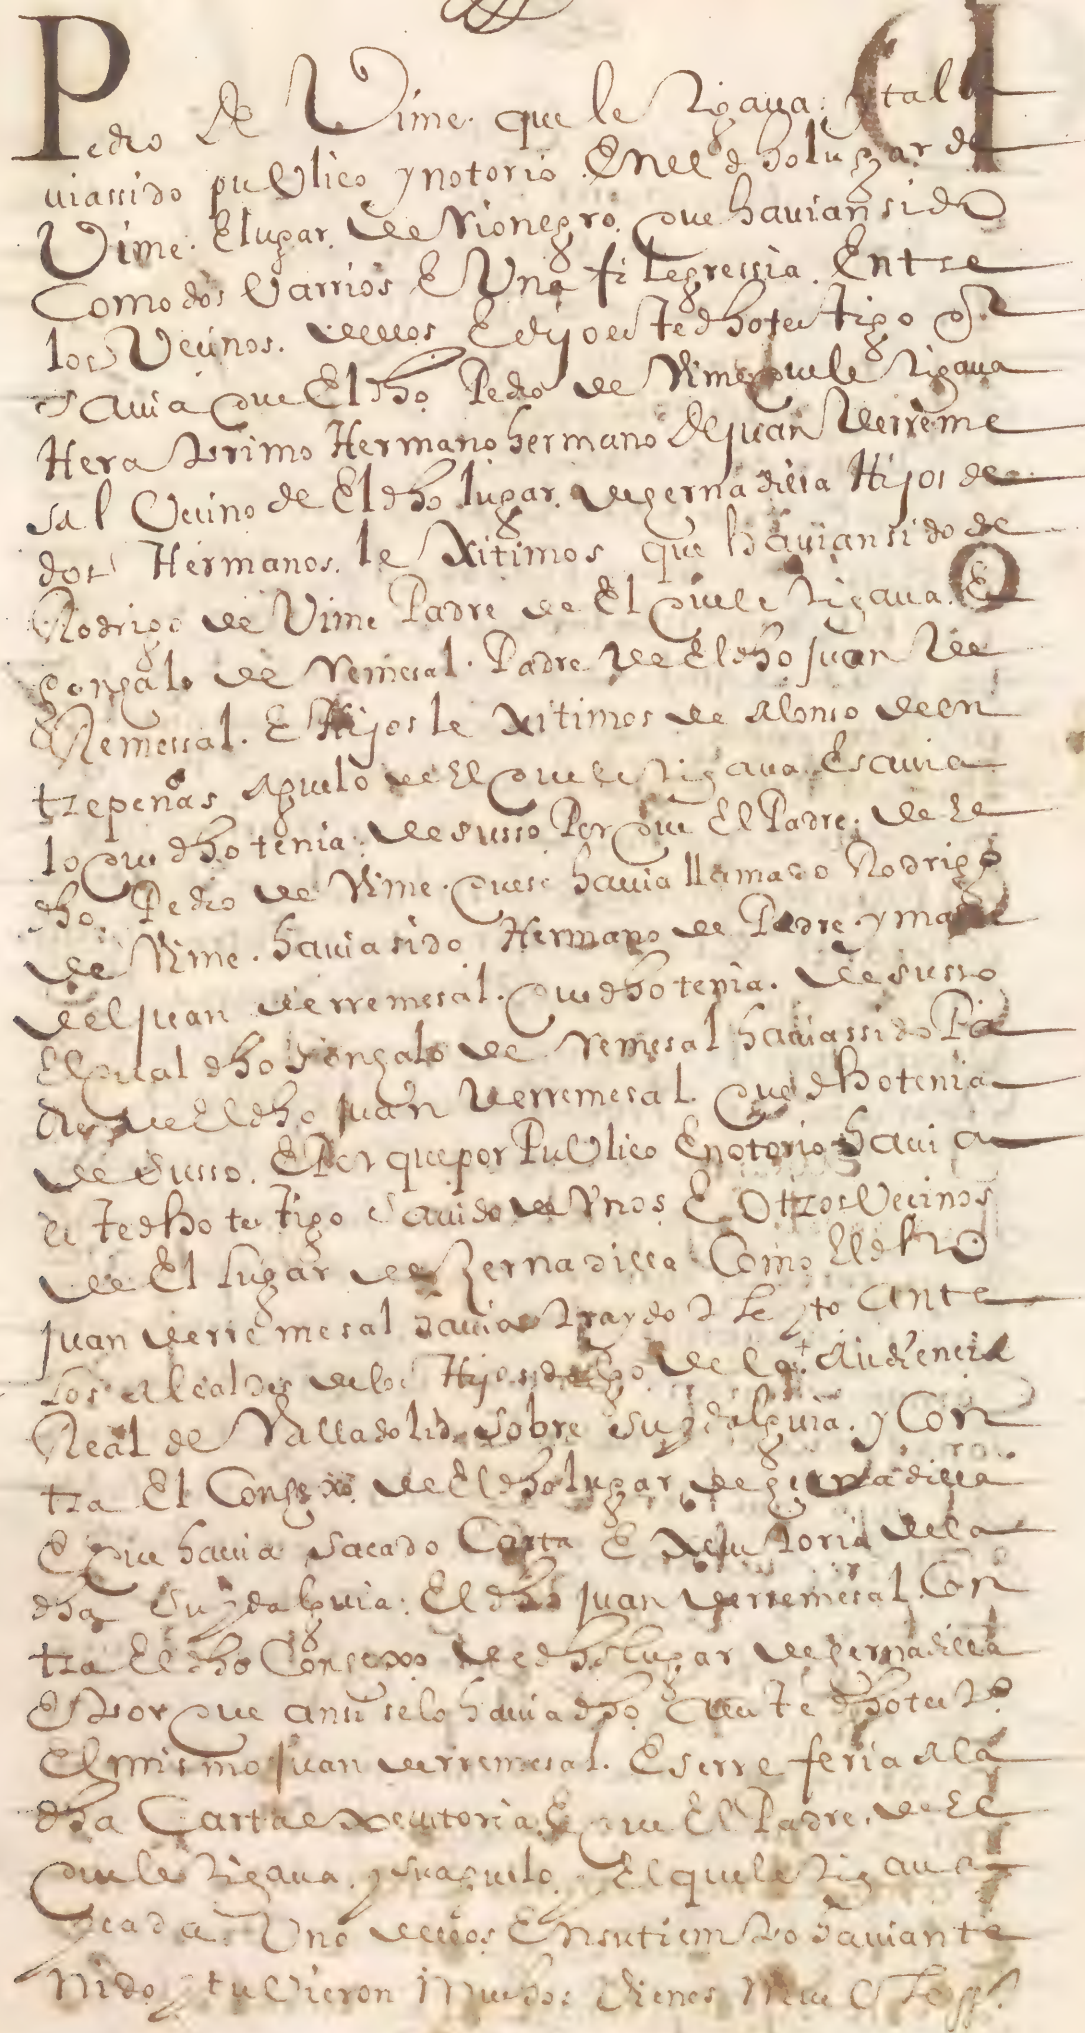 Pedro de Vime. que le Tigaua. y tal
uiassido puUlico ynotorio Enel dho lugar de
Uime. Elugar. de Rionegro. que hauian sido
Como dos Uarrios E Una filegressia. Entre
los Uecinos. dellos E dijo este dho testigo q
sauia que El dho Pedro de Vime que le Tigaua
Hera Primo Hermano hermano de juan derreme
sal Uecino de El dho lugar. de gernadilla Hijos de
dos Hermanos. le Xitimos que hauian sido de
Rodrigo de Vime Padre de El que le Tigaua. E
gonzalo de remesal. Padre de El dho juan de
Remessal. E Hijos le Xitimos de Alonso de en
trepeñas Aguelo de El que le Tigaua. E sauia
lo que dho tenia. de susso Por que El Padre. de El
dho. Pedro de Vime. que se hauia llamado Rodrigo
de Vime. hauia sido Hermano de Padre y madre
del juan derremesal. que dho tenia. de susso
El qual dho gonzalo de remesal hauiassido Pa
dre de El dho juan derremesal. que dho tenia
de susso. E Por que por PuUlico E notorio hauia
este dho testigo sauido de Vnos E Otros Uecinos
de El lugar de Zernadilla Como El dho
juan derremesal hauia traydo Pleyto ante
los alcaldes delos Hijos dalgo de la Audiencia
Real de Valladolid. sobre su ydalguia. y Con
tra El Consexo. de El dho lugar de gernadilla
E que hauia sacado Carta E Xecutoria dela
dha su ydalguia. El dho juan derremesal. Con
tra El dho Consexo de dho lugar de gernadilla
E Por que ansi se lo hauia dho a este dho testigo
El mismo juan derremesal. E serre feria ala
dha Carta executoria. E que El Padre. de El
que le Tigaua. y su aguelo. y El que le Tigaua
y Cada Uno dellos En su tiempo hauian te
nido y tuUieron Muchos Uienes